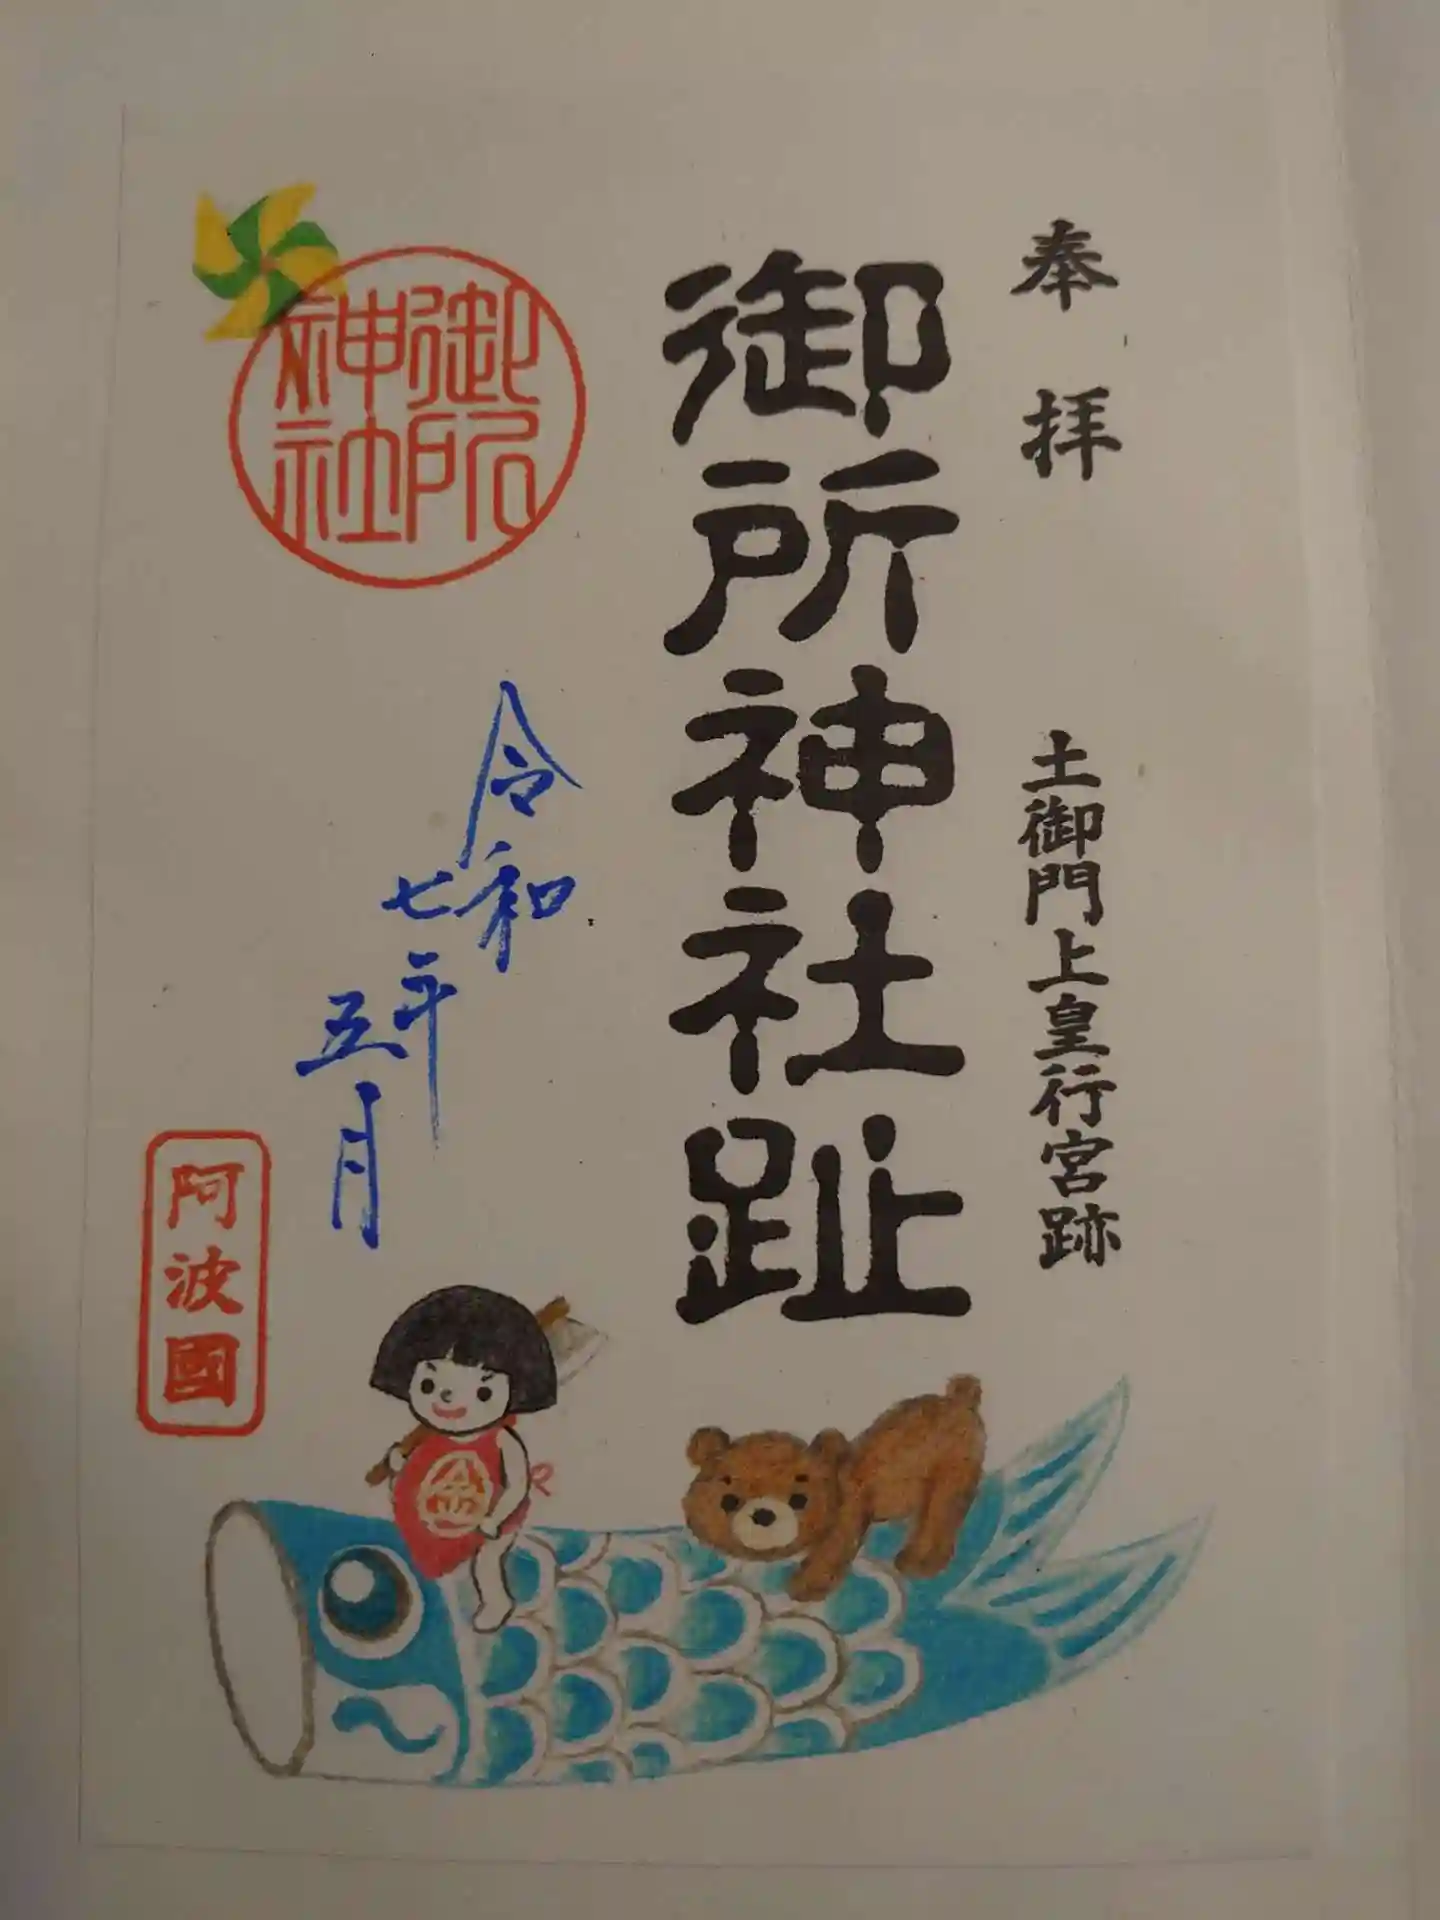 奉拝
土御門上皇行宮跡
御所神社趾
御所
神社
令和
七年
五月
阿波國
金